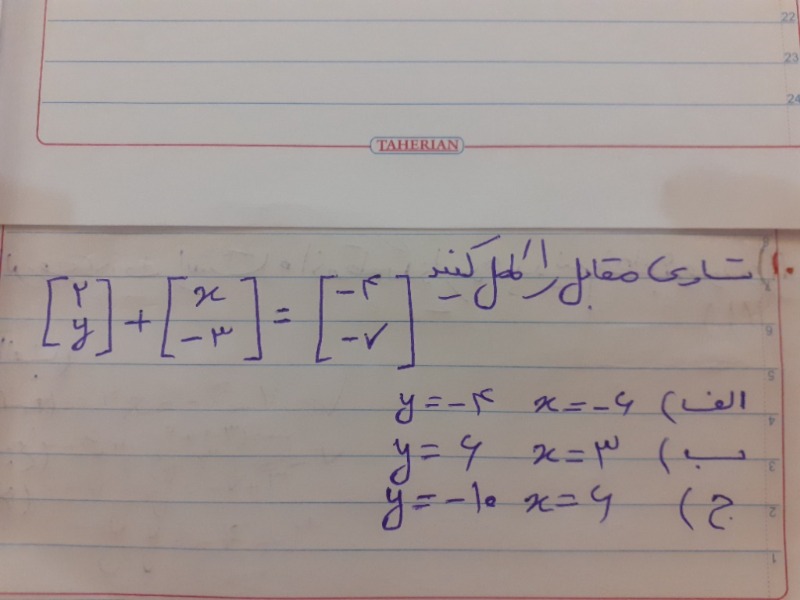 22
23
24
TAHERIAN
تساوی مقابل را کامل کنید
[۲ y] + [x -۳] = [-۴ -۷]
الف) x = -۶ y = -۴
ب) x = ۳ y = ۶
ج) x = ۶ y = -۱۰
7
6
5
4
3
2
1